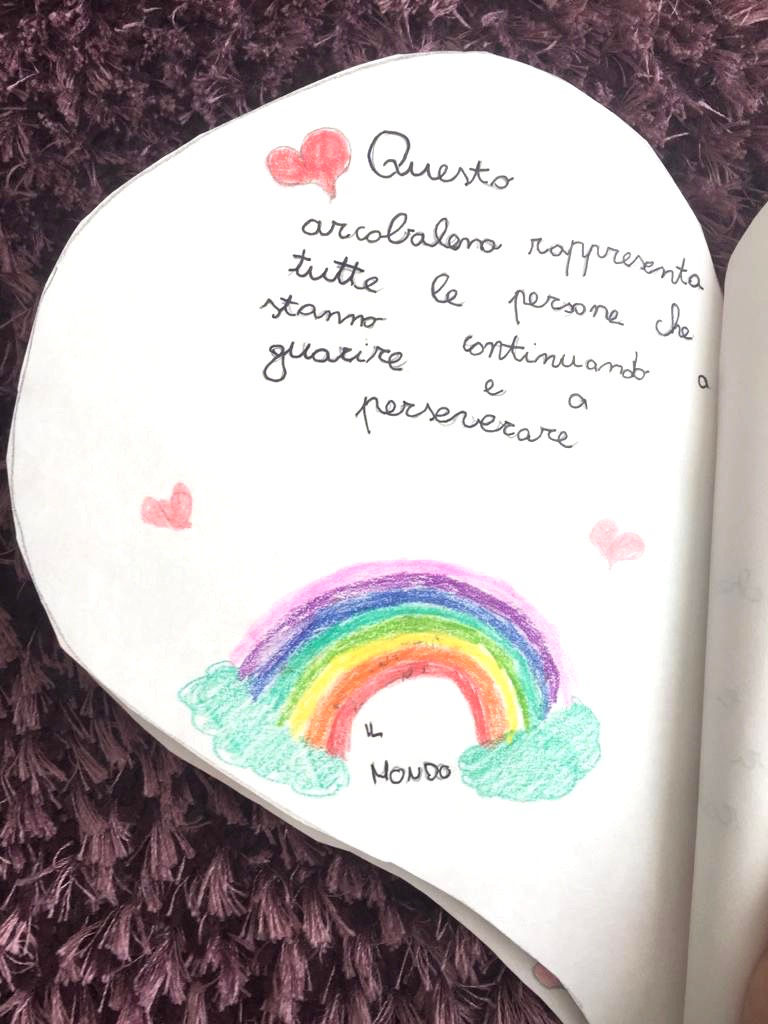 Questo
arcobaleno rappresenta
tutte le persone che
stanno continuando a
guarire e a
perseverare
IL
MONDO